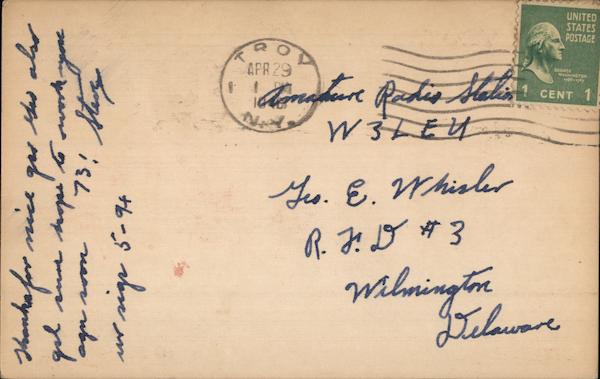 Thanks for nice qso Geo also
gal sure hope to work you
agn soon 73! Steve
ur sigs 5-9+
TROY
APR 29
1
N.Y.
UNITED
STATES
POSTAGE
GEORGE
WASHINGTON
1 CENT 1
Amature Radio Station
W3LEU
Geo. E. Whisler
R. F. D #3
Wilmington
Delaware